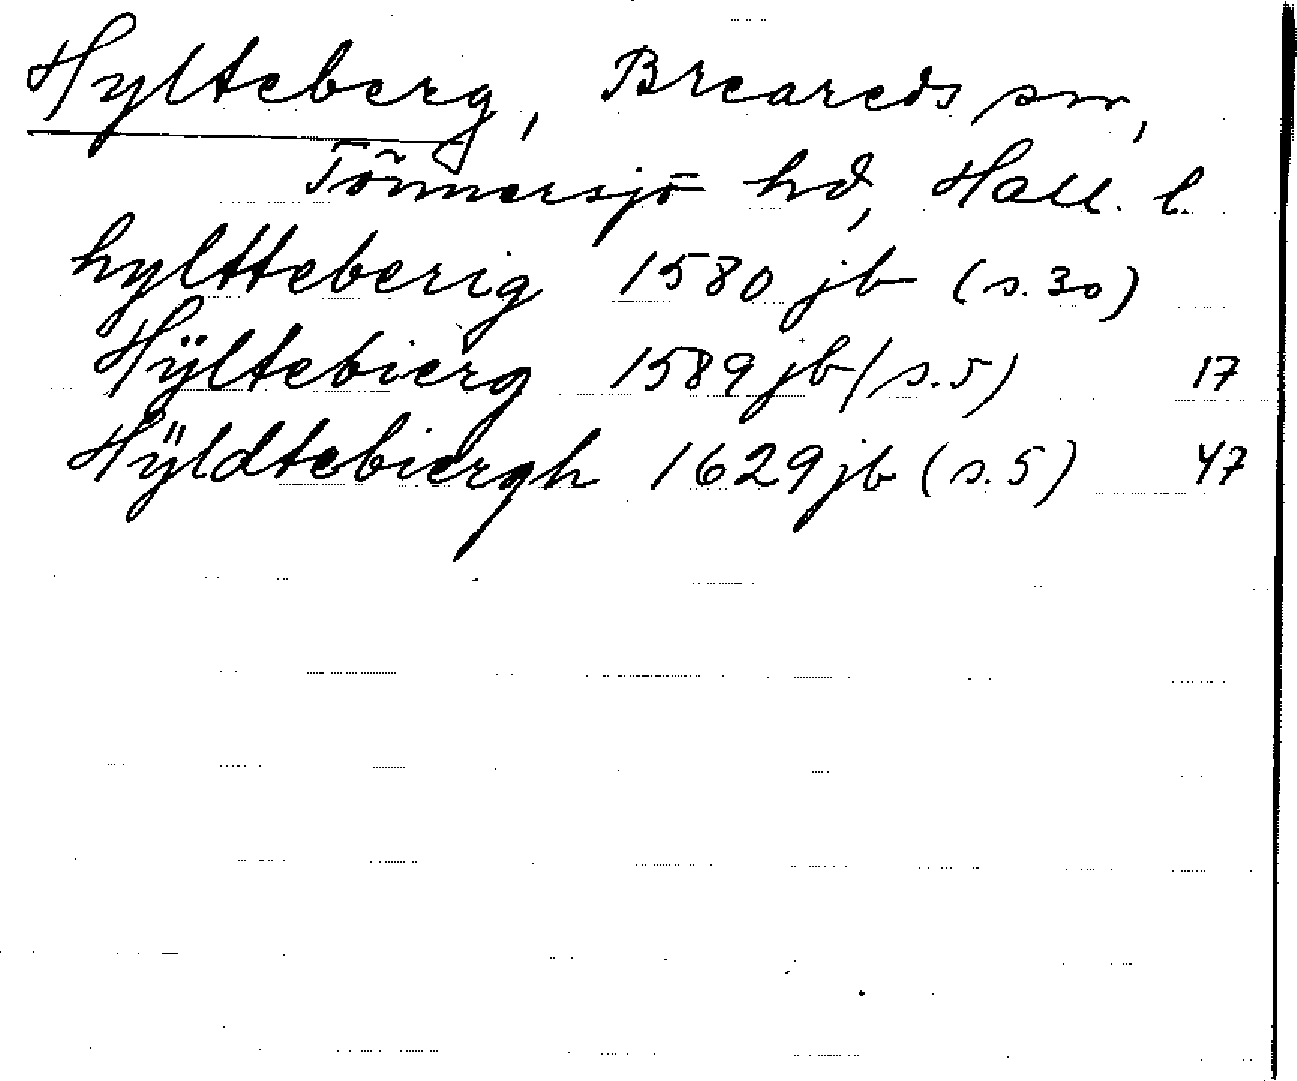 Hylteberg, Breareds sn,
Tönnersjö hd, Hall. l.
hyltteberig 1580 jb (s. 30)
Hÿltebierg 1589 jb (s. 5) 17
Hÿldtebiergh 1629 jb (s. 5) 47